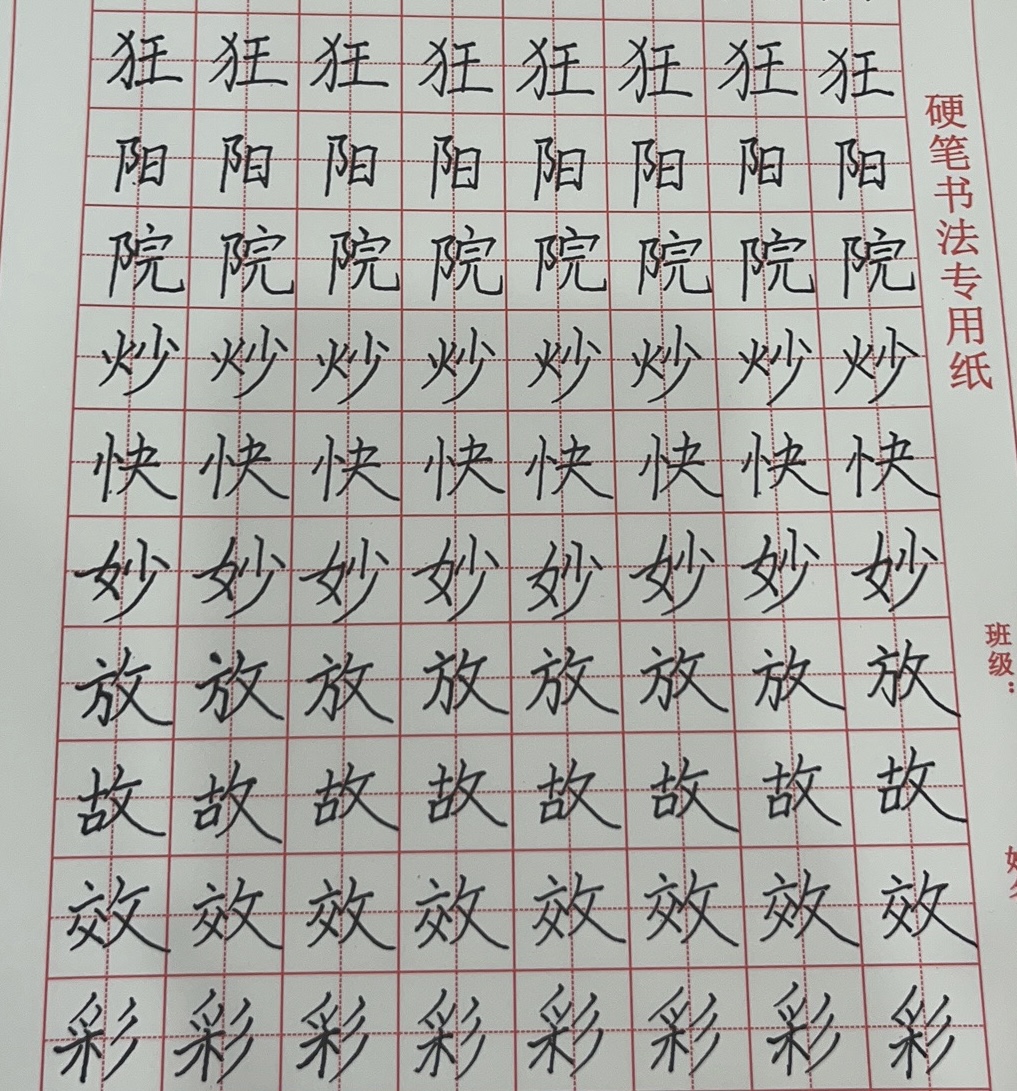 狂狂狂狂狂狂狂狂
阳阳阳阳阳阳阳阳
院院院院院院院院
炒炒炒炒炒炒炒炒
快快快快快快快快
妙妙妙妙妙妙妙妙
放放放放放放放放
故故故故故故故故
效效效效效效效效
彩彩彩彩彩彩彩彩
硬笔书法专用纸
班级：